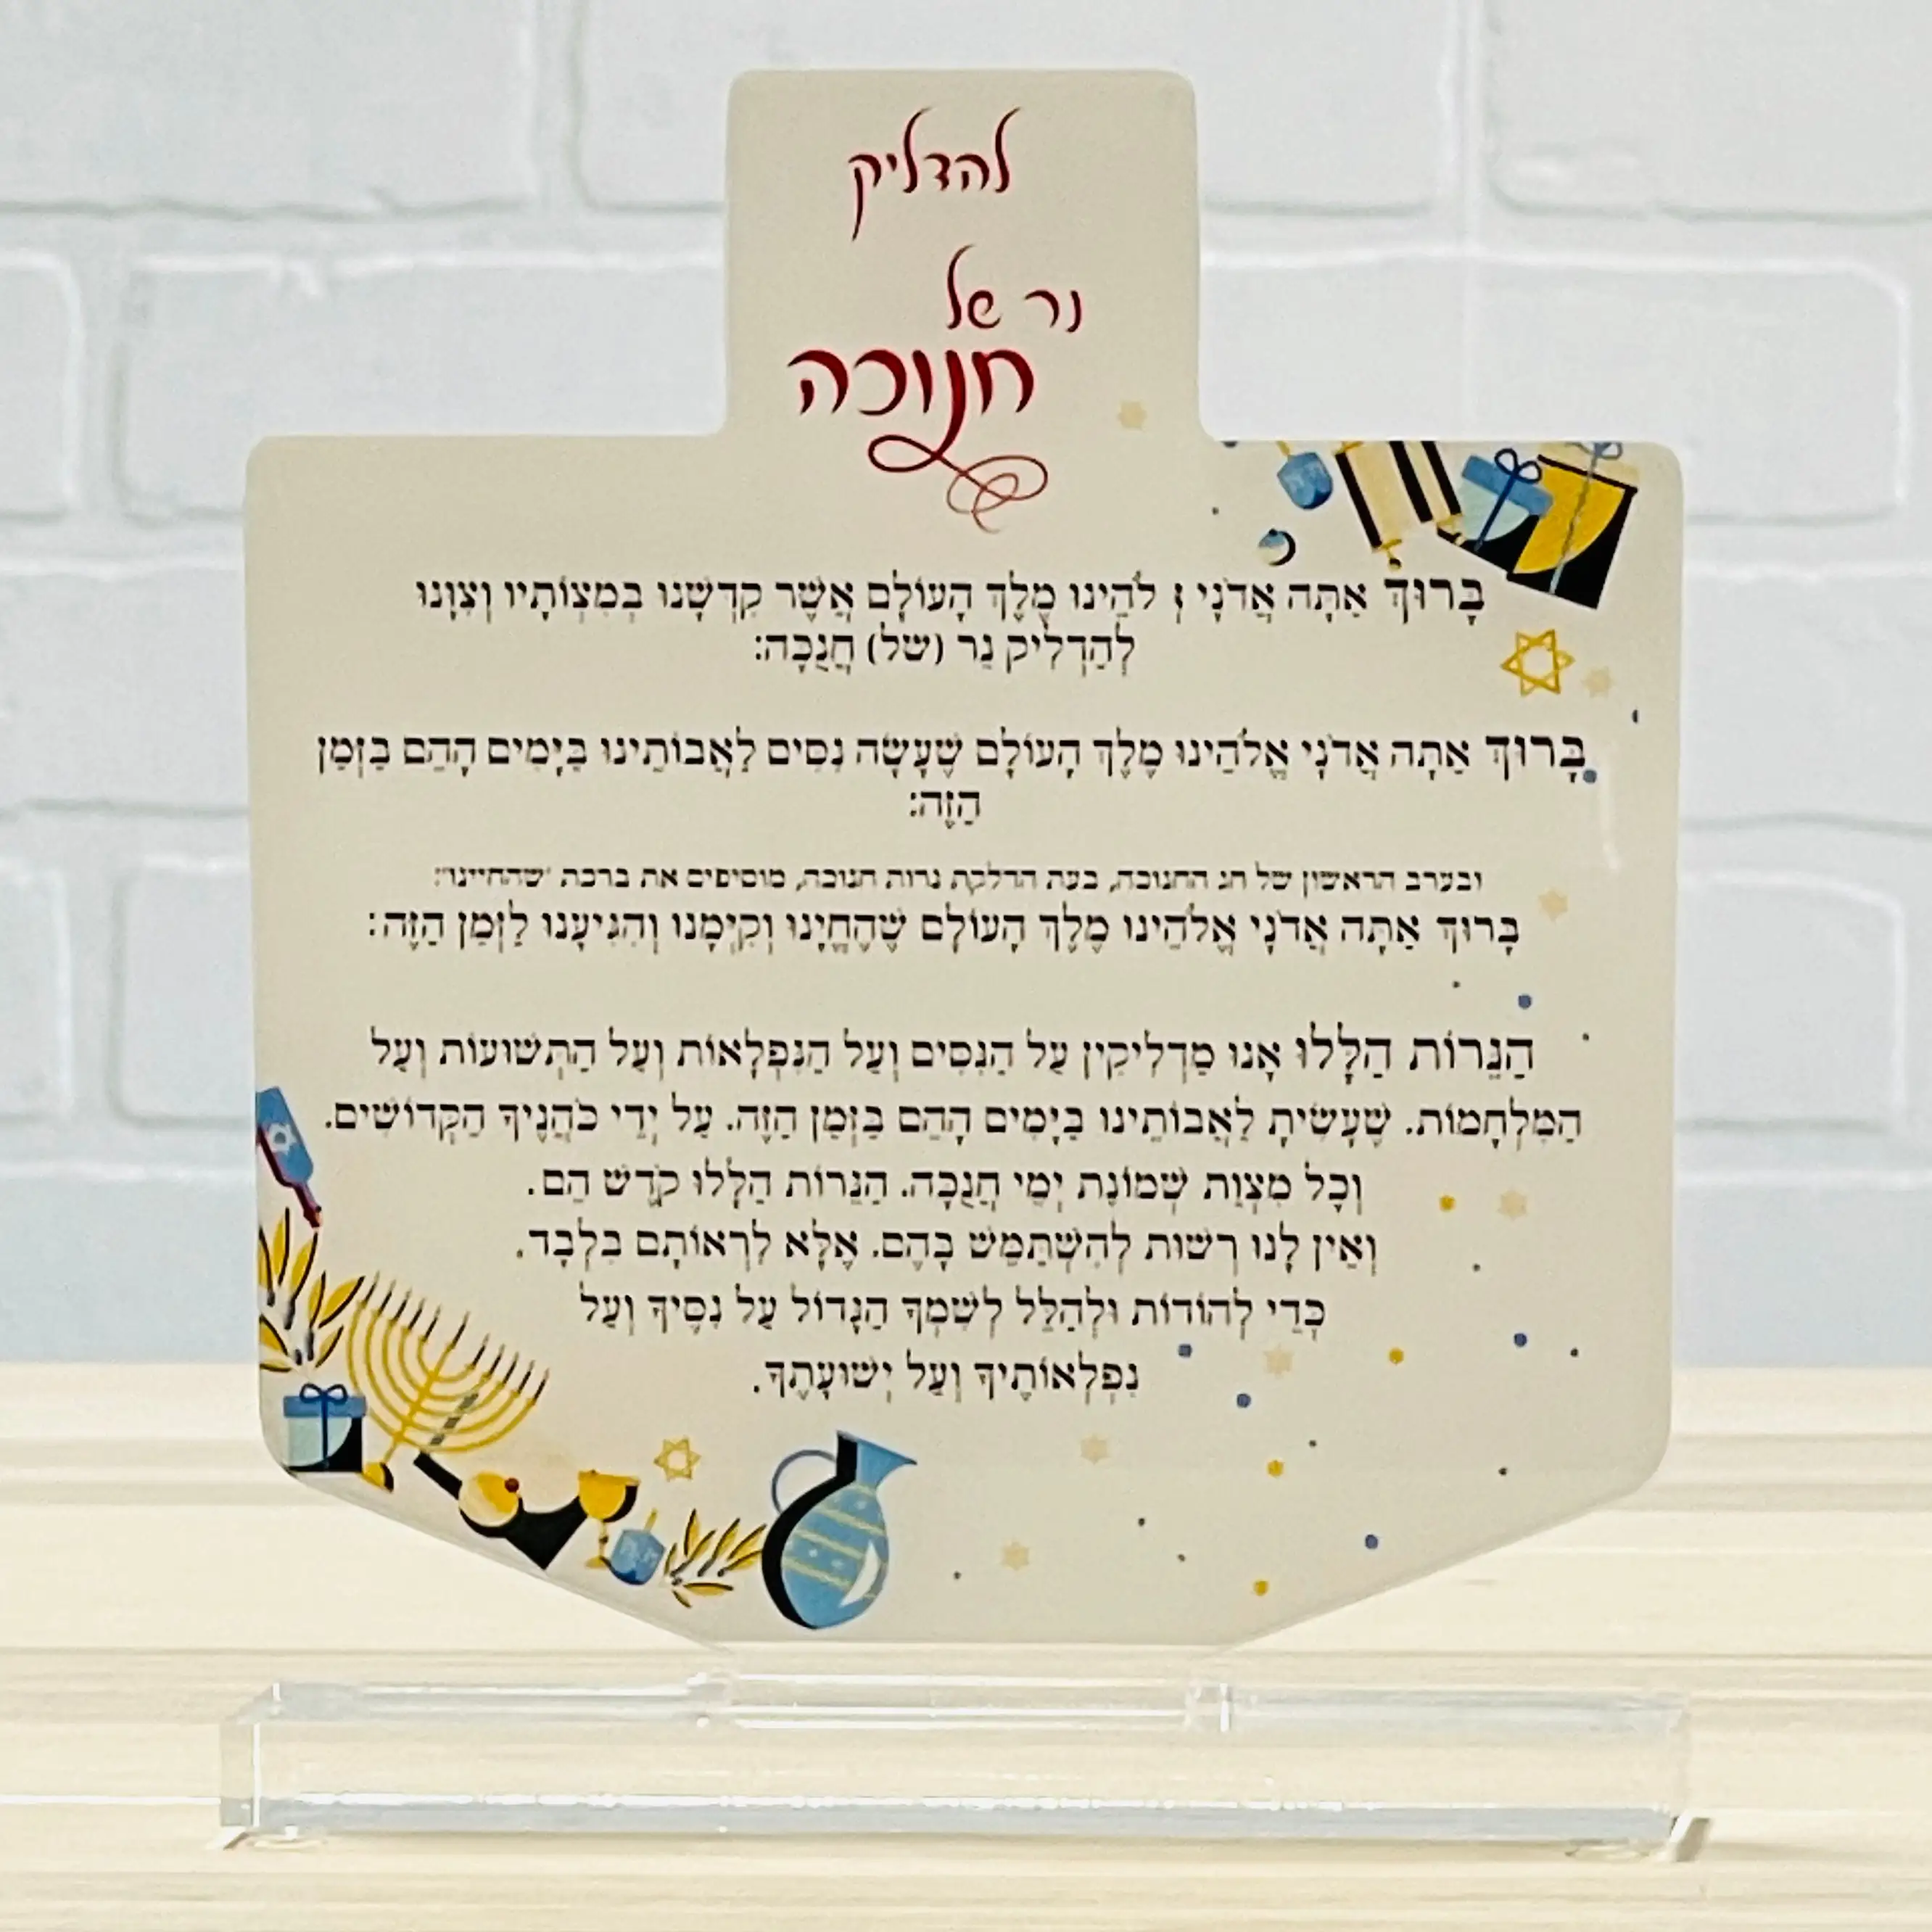 להדליק
נר של
חנוכה
בָּרוּךְ אַתָּה אֲדֹנָי לֹהֵינוּ מֶלֶךְ הָעוֹלָם אֲשֶׁר קִדְּשָׁנוּ בְּמִצְוֹתָיו וְצִוָּנוּ
לְהַדְלִיק נֵר (של) חֲנֻכָּה:
בָּרוּךְ אַתָּה אֲדֹנָי אֱלֹהֵינוּ מֶלֶךְ הָעוֹלָם שֶׁעָשָׂה נִסִּים לַאֲבוֹתֵינוּ בַּיָּמִים הָהֵם בַּזְּמַן
הַזֶּה:
ובערב הראשון של חג החנוכה, בעת הדלקת נרות חנוכה, מוסיפים את ברכת 'שהחיינו':
בָּרוּךְ אַתָּה אֲדֹנָי אֱלֹהֵינוּ מֶלֶךְ הָעוֹלָם שֶׁהֶחֱיָנוּ וְקִיְּמָנוּ וְהִגִּיעָנוּ לַזְּמַן הַזֶּה:
הַנֵּרוֹת הַלָּלוּ אָנוּ מַדְלִיקִין עַל הַנִּסִּים וְעַל הַנִּפְלָאוֹת וְעַל הַתְּשׁוּעוֹת וְעַל
הַמִּלְחָמוֹת. שֶׁעָשִׂיתָ לַאֲבוֹתֵינוּ בַּיָּמִים הָהֵם בַּזְּמַן הַזֶּה. עַל יְדֵי כֹּהֲנֶיךָ הַקְּדוֹשִׁים.
וְכָל מִצְוַת שְׁמוֹנַת יְמֵי חֲנֻכָּה. הַנֵּרוֹת הַלָּלוּ קֹדֶשׁ הֵם.
וְאֵין לָנוּ רְשׁוּת לְהִשְׁתַּמֵּשׁ בָּהֶם. אֶלָּא לִרְאוֹתָם בִּלְבָד.
כְּדֵי לְהוֹדוֹת וּלְהַלֵּל לְשִׁמְךָ הַגָּדוֹל עַל נִסֶּיךָ וְעַל
נִפְלְאוֹתֶיךָ וְעַל יְשׁוּעָתֶךָ.